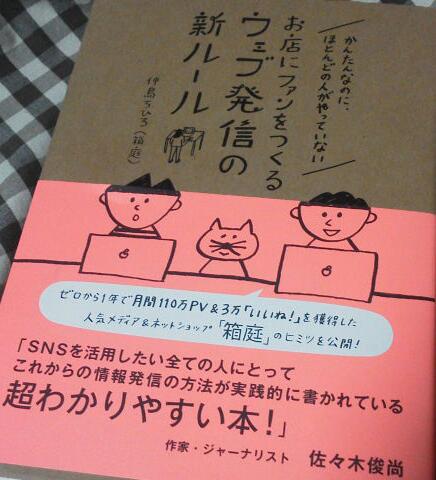 かんたんなのに、
ほとんどの人がやっていない
お店にファンをつくる
ウェブ発信の
新ルール
仲島ちひろ（箱庭）
ゼロから1年で月間110万PV&3万「いいね!」を獲得した
人気メディア&ネットショップ「箱庭」のヒミツを公開!
「SNSを活用したい全ての人にとって
これからの情報発信の方法が実践的に書かれている
超わかりやすい本!」
作家・ジャーナリスト 佐々木俊尚